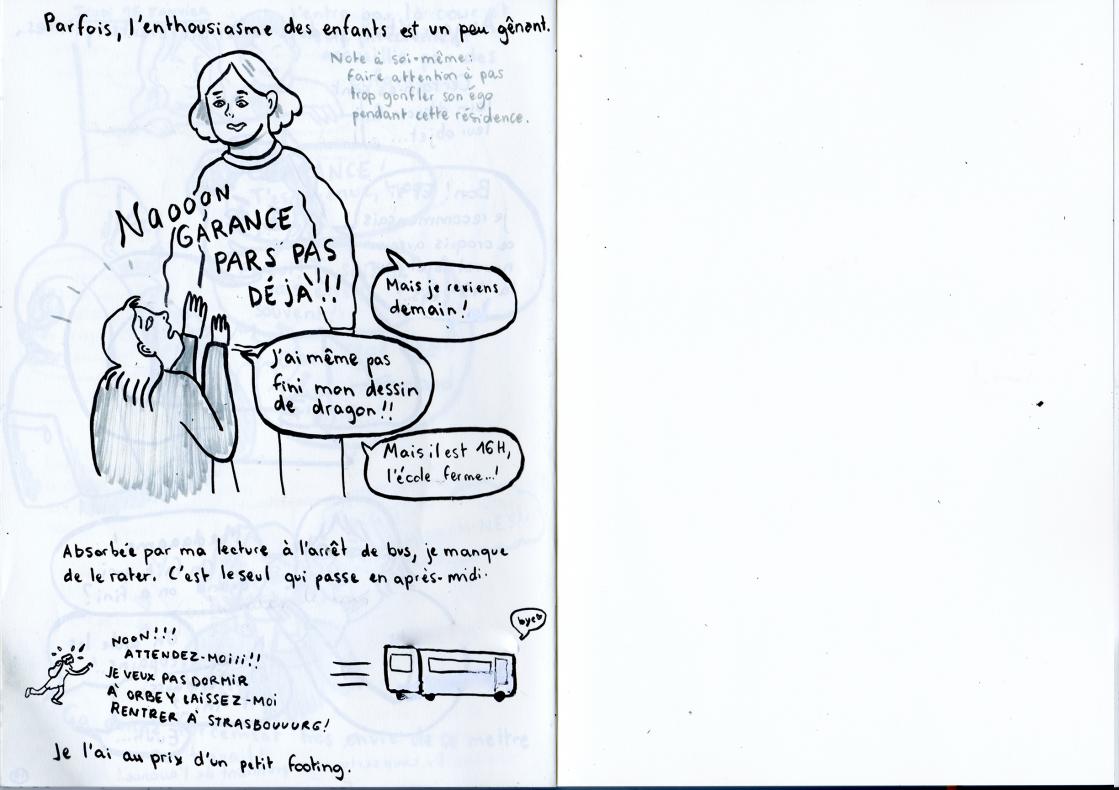 Parfois, l'enthousiasme des enfants est un peu gênant.
Note à soi-même:
faire attention à pas
trop gonfler son égo
pendant cette résidence.
Naooon
GARANCE
PARS PAS
DÉJÀ !!
Mais je reviens
demain!
J'ai même pas
fini mon dessin
de dragon!!
Mais il est 16H,
l'école ferme...!
Absorbée par ma lecture à l'arrêt de bus, je manque
de le rater. C'est le seul qui passe en après-midi.
bye
NOON!!!
ATTENDEZ-MOiiii!!
JE VEUX PAS DORMIR
À ORBEY LAISSEZ-MOI
RENTRER À STRASBOUUURG!
Je l'ai au prix d'un petit footing.